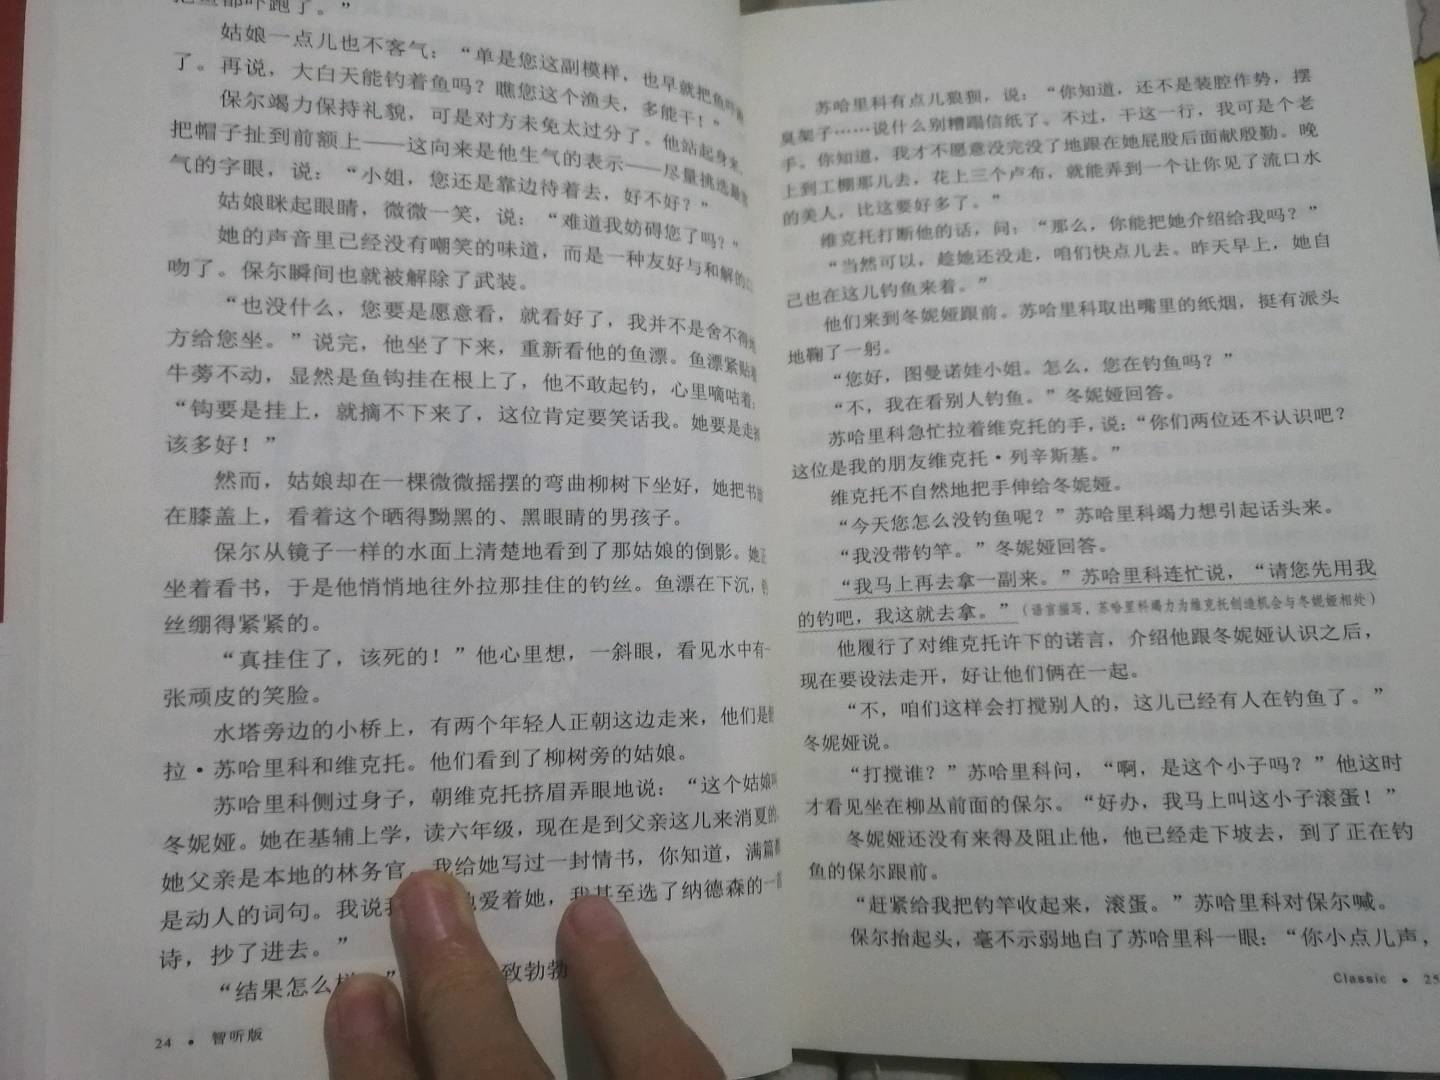 把鱼都吓跑了。”
姑娘一点儿也不客气：“单是您这副模样，也早就把鱼吓
了。再说，大白天能钓着鱼吗？瞧您这个渔夫，多能干！”
保尔竭力保持礼貌，可是对方未免太过分了。他站起身来，
把帽子扯到前额上——这向来是他生气的表示——尽量挑选最
气的字眼，说：“小姐，您还是靠边待着去，好不好？”
姑娘眯起眼睛，微微一笑，说：“难道我妨碍您了吗？”
她的声音里已经没有嘲笑的味道，而是一种友好与和解的口
吻了。保尔瞬间也就被解除了武装。
“也没什么，您要是愿意看，就看好了，我并不是舍不得地
方给您坐。”说完，他坐了下来，重新看他的鱼漂。鱼漂紧贴着
牛蒡不动，显然是鱼钩挂在根上了，他不敢起钓，心里嘀咕着：
“钩要是挂上，就摘不下来了，这位肯定要笑话我。她要是走掉
该多好！”
然而，姑娘却在一棵微微摇摆的弯曲柳树下坐好，她把书放
在膝盖上，看着这个晒得黝黑的、黑眼睛的男孩子。
保尔从镜子一样的水面上清楚地看到了那姑娘的倒影。她正
坐着看书，于是他悄悄地往外拉那挂住的钓丝。鱼漂在下沉，钓
丝绷得紧紧的。
“真挂住了，该死的！”他心里想，一斜眼，看见水中有一
张顽皮的笑脸。
水塔旁边的小桥上，有两个年轻人正朝这边走来，他们是
拉·苏哈里科和维克托。他们看到了柳树旁的姑娘。
苏哈里科侧过身子，朝维克托挤眉弄眼地说：“这个姑娘叫
冬妮娅。她在基辅上学，读六年级，现在是到父亲这儿来消夏的。
她父亲是本地的林务官。我给她写过一封情书，你知道，满篇都
是动人的词句。我说我 地爱着她，我甚至选了纳德森的一首
诗，抄了进去。”
“结果怎么样 ” 致勃勃
24 · 智听版
苏哈里科有点儿狼狈，说：“你知道，还不是装腔作势，摆
臭架子……说什么别糟蹋信纸了。不过，干这一行，我可是个老
手。你知道，我才不愿意没完没了地跟在她屁股后面献殷勤。晚
上到工棚那儿去，花上三个卢布，就能弄到一个让你见了流口水
的美人，比这要好多了。”
维克托打断他的话，问：“那么，你能把她介绍给我吗？”
“当然可以，趁她还没走，咱们快点儿去。昨天早上，她自
己也在这儿钓鱼来着。”
他们来到冬妮娅跟前。苏哈里科取出嘴里的纸烟，挺有派头
地鞠了一躬。
“您好，图曼诺娃小姐。怎么，您在钓鱼吗？”
“不，我在看别人钓鱼。”冬妮娅回答。
苏哈里科急忙拉着维克托的手，说：“你们两位还不认识吧？
这位是我的朋友维克托·列辛斯基。”
维克托不自然地把手伸给冬妮娅。
“今天您怎么没钓鱼呢？”苏哈里科竭力想引起话头来。
“我没带钓竿。”冬妮娅回答。
“我马上再去拿一副来。”苏哈里科连忙说，“请您先用我
的钓吧，我这就去拿。”（语言描写，苏哈里科竭力为维克托创造机会与冬妮娅相处）
他履行了对维克托许下的诺言，介绍他跟冬妮娅认识之后，
现在要设法走开，好让他们俩在一起。
“不，咱们这样会打搅别人的，这儿已经有人在钓鱼了。”
冬妮娅说。
“打搅谁？”苏哈里科问，“啊，是这个小子吗？”他这时
才看见坐在柳丛前面的保尔。“好办，我马上叫这小子滚蛋！”
冬妮娅还没有来得及阻止他，他已经走下坡去，到了正在钓
鱼的保尔跟前。
“赶紧给我把钓竿收起来，滚蛋。”苏哈里科对保尔喊。
保尔抬起头，毫不示弱地白了苏哈里科一眼：“你小点儿声，
Classic · 25